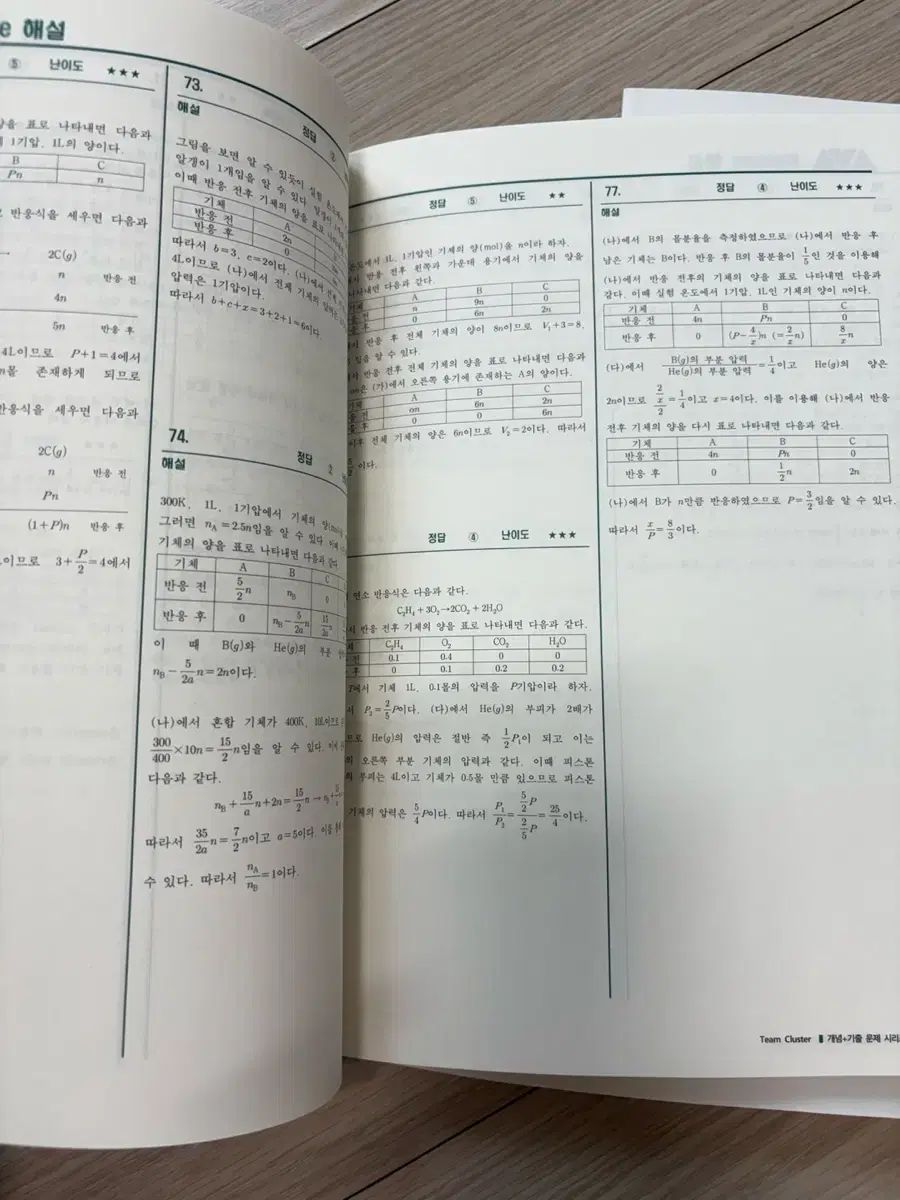 e 해설
⑤ 난이도 ★★★
양을 표로 나타내면 다음과
1기압, 1L의 양이다.
B C
Pn n
반응식을 세우면 다음과
→ 2C(g)
n 반응 전
4n
5n 반응 후
4L이므로 P+1=4에서
n몰 존재하게 되므로
반응식을 세우면 다음과
2C(g)
n 반응 전
Pn
(1+P)n 반응 후
이므로 3+P/2=4에서
73.
해설 정답 ②
그림을 보면 알 수 있듯이 실험
알갱이 1개임을 알 수 있다.
이때 반응 전후 기체의 양을 표로
기체 A
반응 전 2n
반응 후 0
따라서 b=3, c=2이다. (나)에서
4L이므로 (나)에서 전체 기체의
압력은 1기압이다.
따라서 b+c+x=3+2+1=6이다.
74.
해설 정답
300K, 1L, 1기압에서 기체의 양(mol)
그러면 n_A=2.5n임을 알 수 있다.
기체의 양을 표로 나타내면 다음과 같다
기체 A B C
반응 전 5/2n n_B 0
반응 후 0 n_B-5/2a n 15/2a
이 때 B(g)와 He(g)의 부분
n_B-5/2a n=2n이다.
(나)에서 혼합 기체가 400K, 10L이므로
300/400×10n=15/2n임을 알 수 있다.
다음과 같다.
n_B+15/a n+2n=15/2n → n_B+
따라서 35/2a n=7/2n이고 a=5이다.
수 있다. 따라서 n_A/n_B=1이다.
정답 ⑤ 난이도 ★★
온도에서 1L, 1기압인 기체의 양(mol)을 n이라 하자.
반응 전후 왼쪽과 가운데 용기에서 기체의 양을
나타내면 다음과 같다.
A B C
전 n 9n 0
후 0 6n 2n
반응 후 전체 기체의 양이 8n이므로 V₁+3=8,
임을 알 수 있다.
반응 전후 전체 기체의 양을 표로 나타내면 다음과
αn은 (가)에서 오른쪽 용기에 존재하는 A의 양이다.
기체 A B C
전 αn 6n 2n
후 0 0 6n
이후 전체 기체의 양은 6n이므로 V₂=2이다. 따라서
이다.
정답 ④ 난이도 ★★★
연소 반응식은 다음과 같다.
C₂H₄+3O₂→2CO₂+2H₂O
반응 전후 기체의 양을 표로 나타내면 다음과 같다.
C₂H₄ O₂ CO₂ H₂O
전 0.1 0.4 0 0
후 0 0.1 0.2 0.2
T에서 기체 1L, 0.1몰의 압력을 P기압이라 하자.
P₂=2/5P이다. (다)에서 He(g)의 부피가 2배가
므로 He(g)의 압력은 절반 즉 1/2P₁이 되고 이는
의 오른쪽 부분 기체의 압력과 같다. 이때 피스톤
의 부피는 4L이고 기체가 0.5몰 만큼 있으므로 피스톤
기체의 압력은 5/4P이다. 따라서 P₁/P₂=(5/2P)/(2/5P)=25/4이다.
77. 정답 ④ 난이도 ★★★
해설
(나)에서 B의 몰분율을 측정하였으므로 (나)에서 반응 후
남은 기체는 B이다. 반응 후 B의 몰분율이 1/5인 것을 이용해
(나)에서 반응 전후의 기체의 양을 표로 나타내면 다음과
같다. 이때 실험 온도에서 1기압, 1L인 기체의 양이 n이다.
기체 A B C
반응 전 4n Pn 0
반응 후 0 (P-4/x)n (=2/x n) 8/x n
(다)에서 B(g)의 부분 압력/He(g)의 부분 압력=1/4이고 He(g)의 양은
2n이므로 (2/x)/2=1/4이고 x=4이다. 이를 이용해 (나)에서 반응
전후 기체의 양을 다시 표로 나타내면 다음과 같다.
기체 A B C
반응 전 4n Pn 0
반응 후 0 1/2n 2n
(나)에서 B가 n만큼 반응하였으므로 P=3/2임을 알 수 있다.
따라서 x/P=8/3이다.
Team Cluster 개념+기출 문제 시리